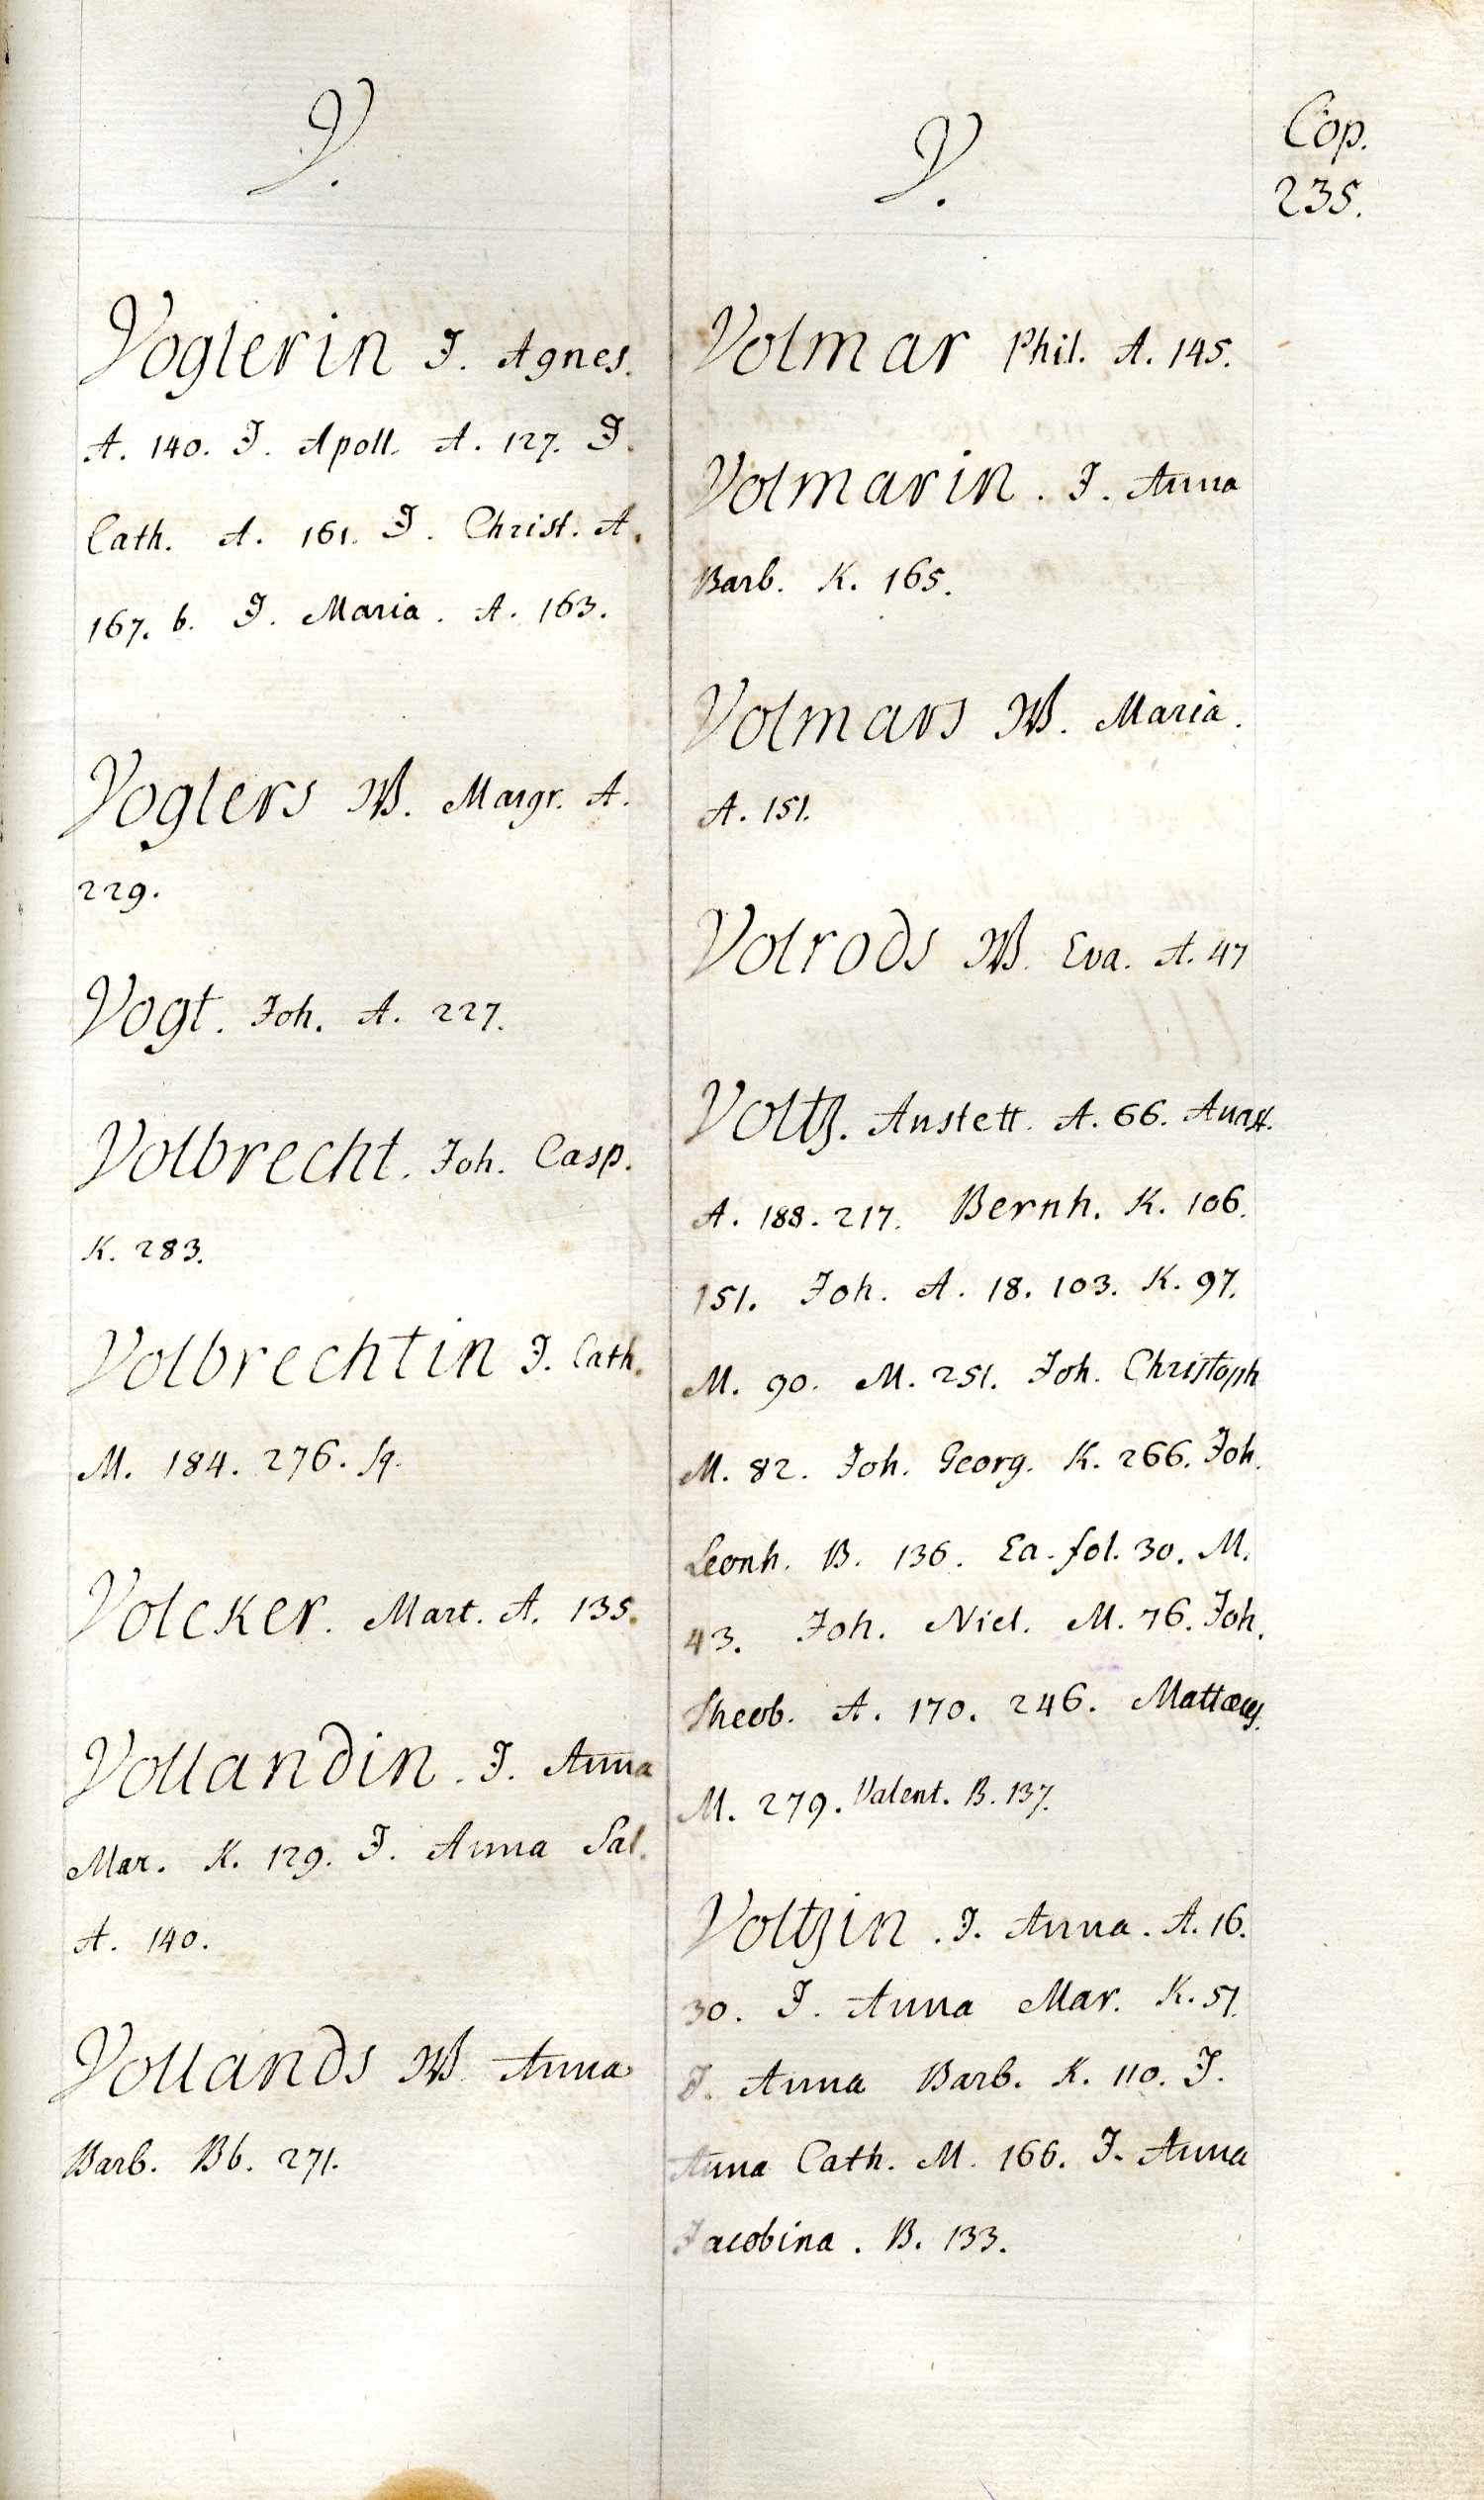 V.
Voglerin J. Agnes.
A. 140. J. Apoll. A. 127. J.
Cath. A. 161. J. Christ. A.
167. b. J. Maria. A. 163.
Voglers W. Margr. A.
229.
Vogt. Joh. A. 227.
Volbrecht. Joh. Casp.
K. 283.
Volbrechtin J. Cath.
M. 184. 276. sq.
Volcker. Mart. A. 135.
Vollandin. J. Anna
Mar. K. 129. J. Anna Sal.
A. 140.
Vollands W. Anna
Barb. Bb. 271.
V.
Volmar Phil. A. 145.
Volmarin. J. Anna
Barb. K. 165.
Volmars W. Maria.
A. 151.
Volrods W. Eva. A. 47
Voltz. Anstett. A. 66.
A. 188. 217. Bernh. K. 106.
151. Joh. A. 18. 103. K. 97.
M. 90. M. 251. Joh. Christoph
M. 82. Joh. Georg. K. 266. Joh.
Leonh. B. 136. Ea. fol. 30. M.
43. Joh. Nicl. M. 76. Joh.
Theob. A. 170. 246. Mattæus.
M. 279. Valent. B. 137.
Voltzin. J. Anna. A. 16.
30. J. Anna Mar. K. 51.
J. Anna Barb. K. 110. J.
Anna Cath. M. 166. J. Anna
Jacobina. B. 133.
Cop.
235.